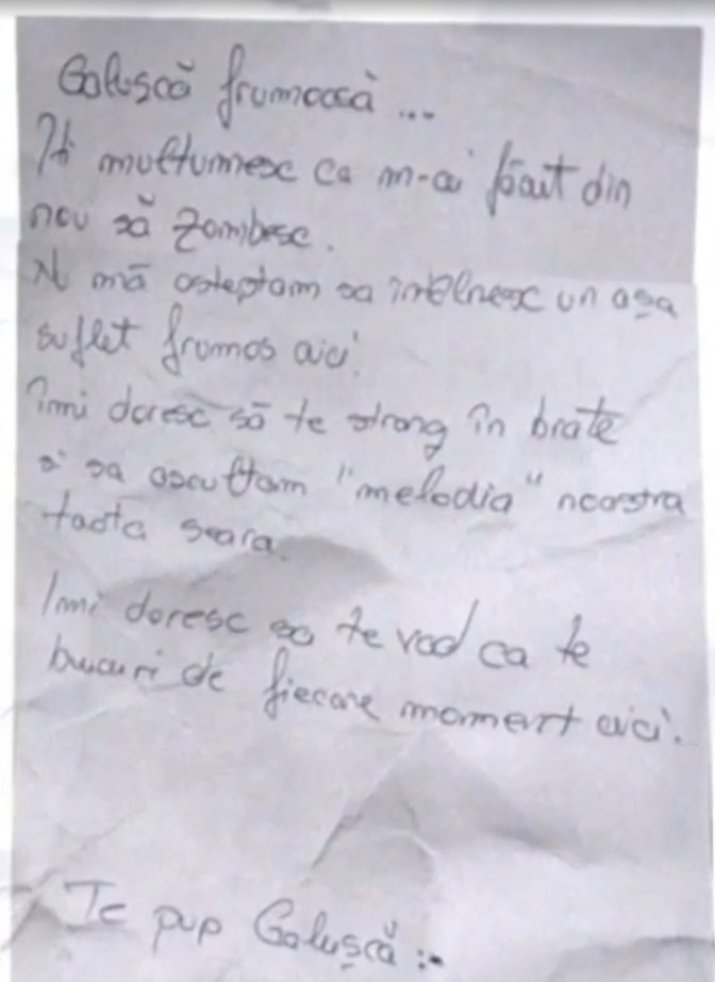 Galuscă frumoasă...
Iti multumesc ca m-ai făcut din
nou să zambesc.
Nu mă asteptam sa intâlnesc un așa
suflet frumos aici.
îmi doresc să te strang în brate
si sa ascultam "melodia" noastra
toata seara.
Imi doresc sa te vad ca te
bucuri de fiecare moment aici.
Te pup Galușcă :-